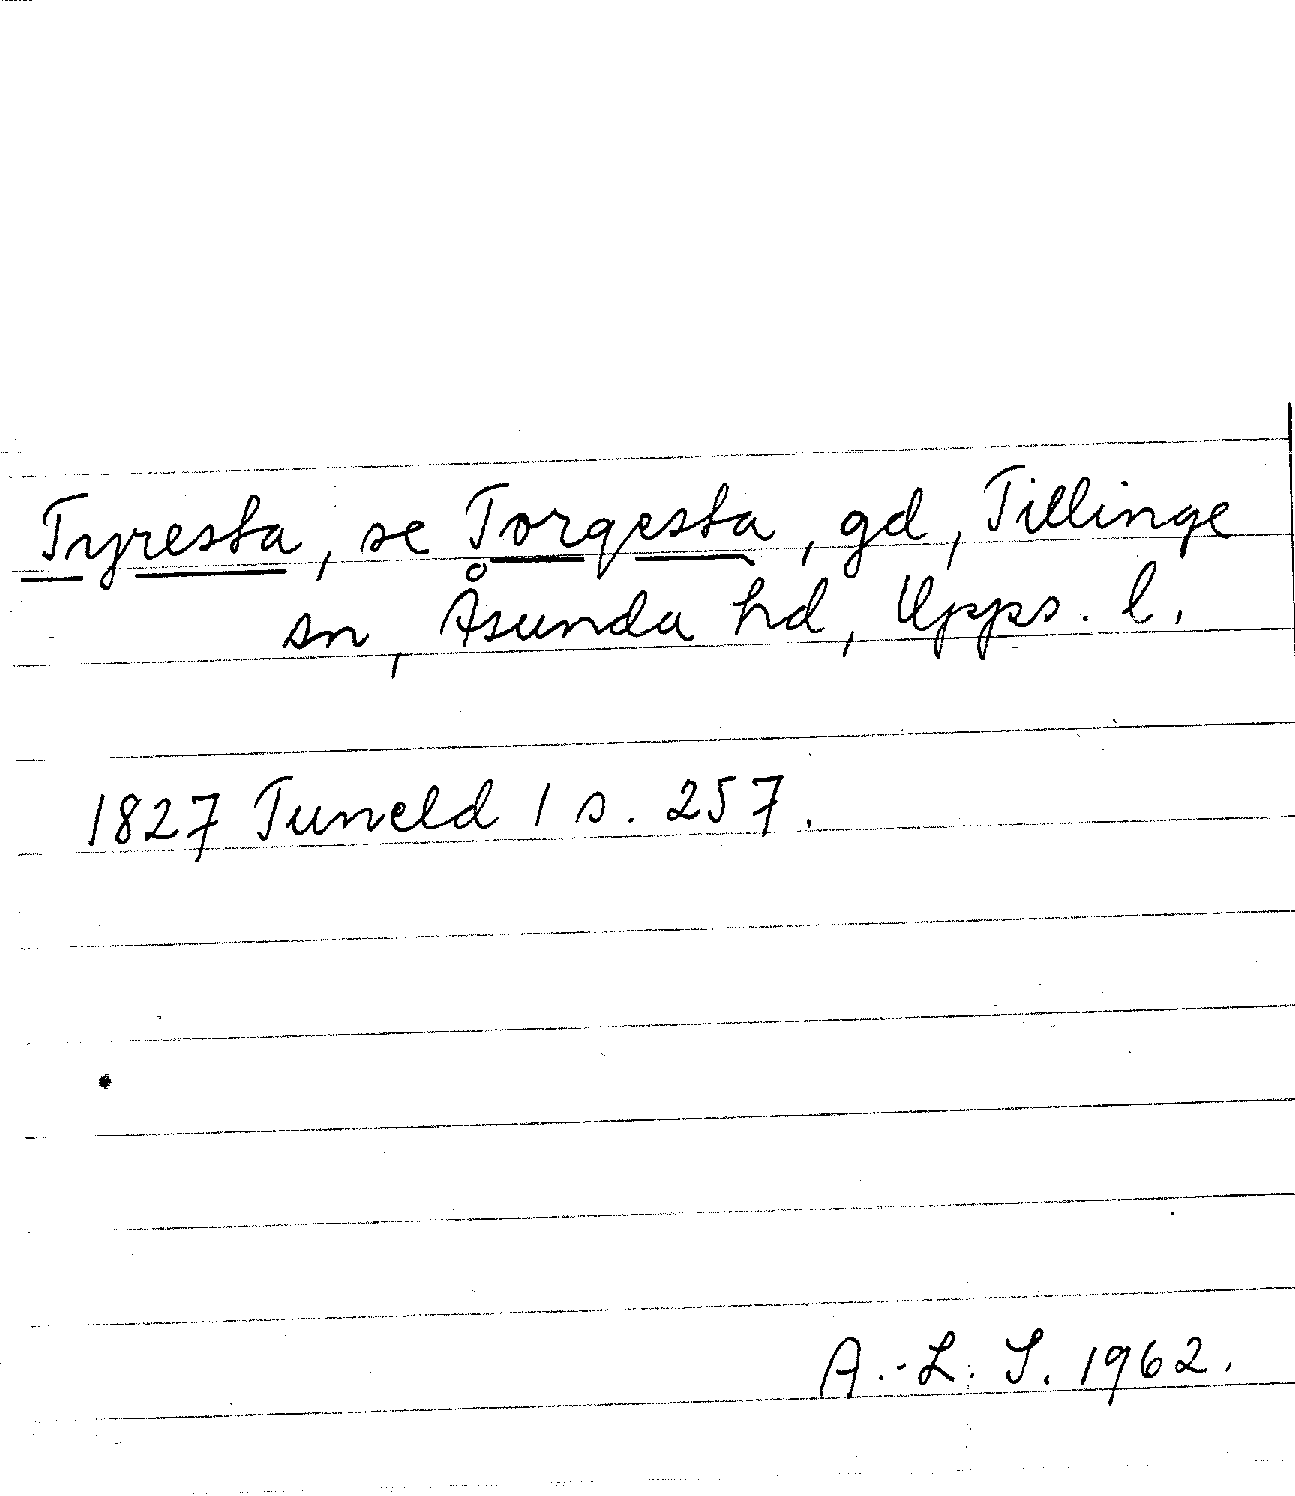 Tyresta, se Torgesta, gd, Tillinge
sn, Åsunda hd, Upps. l.
1827 Tuneld 1 s. 257.
A.-L. S. 1962.